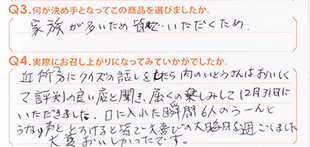 Q3.何が決め手となってこの商品を選びましたか。
家族が多いため皆でいただくため.
Q4.実際にお召し上がりになってみていかがでしたか。
近所にクイズの話しをしたら肉のいとうさんはおいしく
て評判の良い店と聞き、届くの楽しみして12月31日に
いただきました。口に入れた瞬間6人のうーんと
うなり声ととろけると皆で大喜びの大晦日を過ごしました
大変おいしかったです。